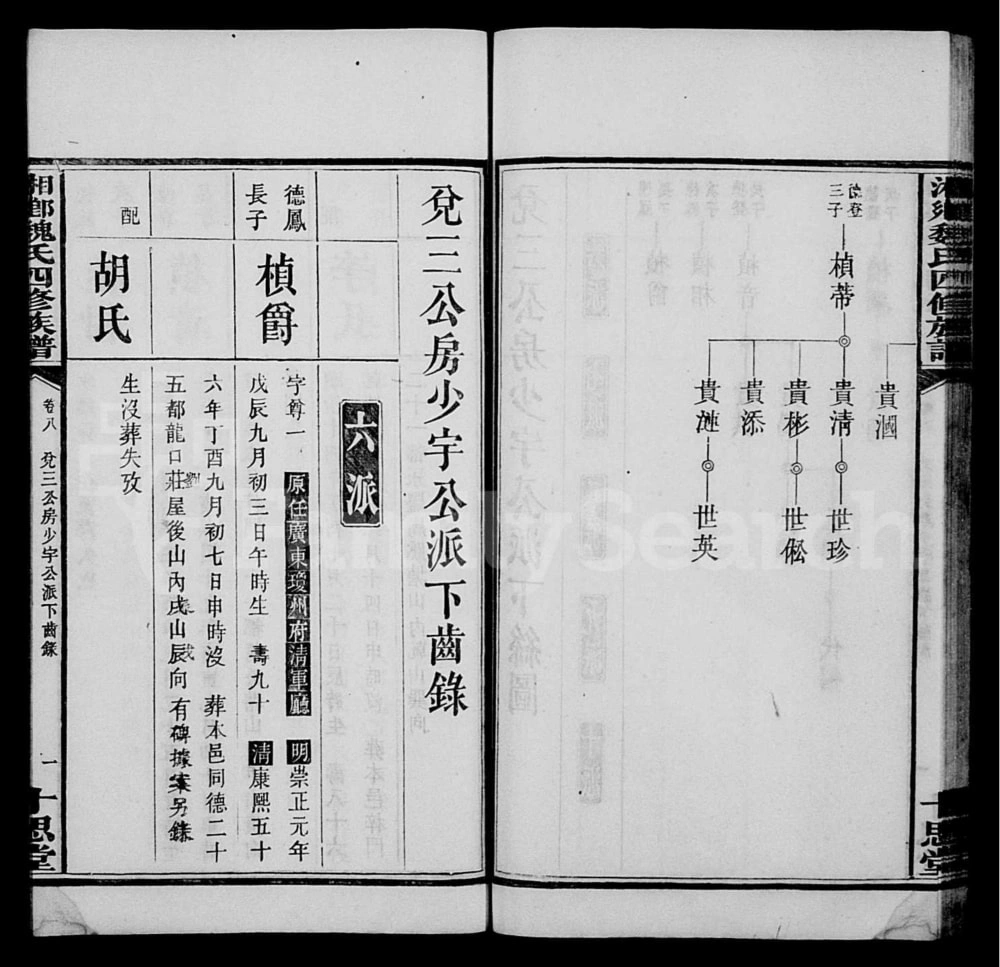 湘鄉魏氏四修族譜
十思堂
貴漍
德登
三子
楨蒂
貴清
世珍
貴彬
世倯
貴添
貴漣
世英
兌三公房少宇公派下齒錄
六派
德鳳
長子
楨爵
字尊一 原任廣東瓊州府清軍廳 明崇正元年
戊辰九月初三日午時生 壽九十 清康熙五十
六年丁酉九月初七日申時沒 葬本邑同德二十
五都龍口莊劉屋後山內戌山辰向 有碑據案另錄
配
胡氏
生沒葬失攷
湘鄉魏氏四修族譜
卷八 兌三公房少宇公派下齒錄
一
十思堂
FamilySearch